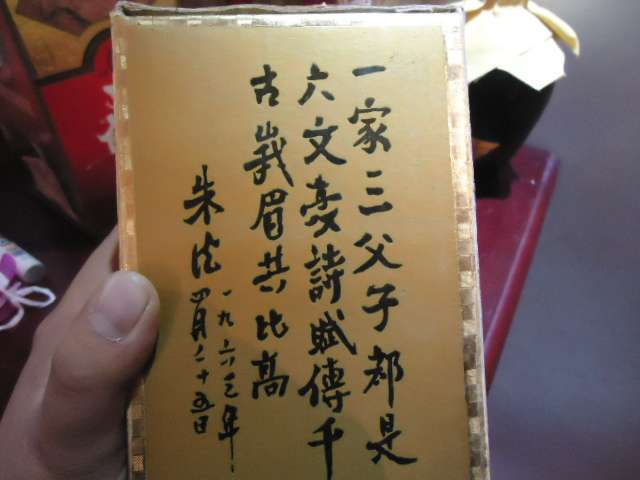 一家三父子都是
大文豪詩賦傳千
古峩眉共比高
朱德
一九六三年
四月二十五日